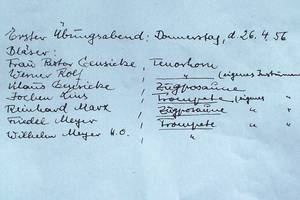 Erster Übungsabend: Donnerstag, d. 26.4.56
Bläser:
Frau Rektor Geusicke, Tenorhorn
Werner Rolf , " (eigenes Instrument
Klaus Geusicke , Zugposaune
Jochen , Trompete (eigenes "
Reinhard Marx , Zugposaune " "
Friedel Meyer , Trompete " "
Wilhelm Meyer II. , "